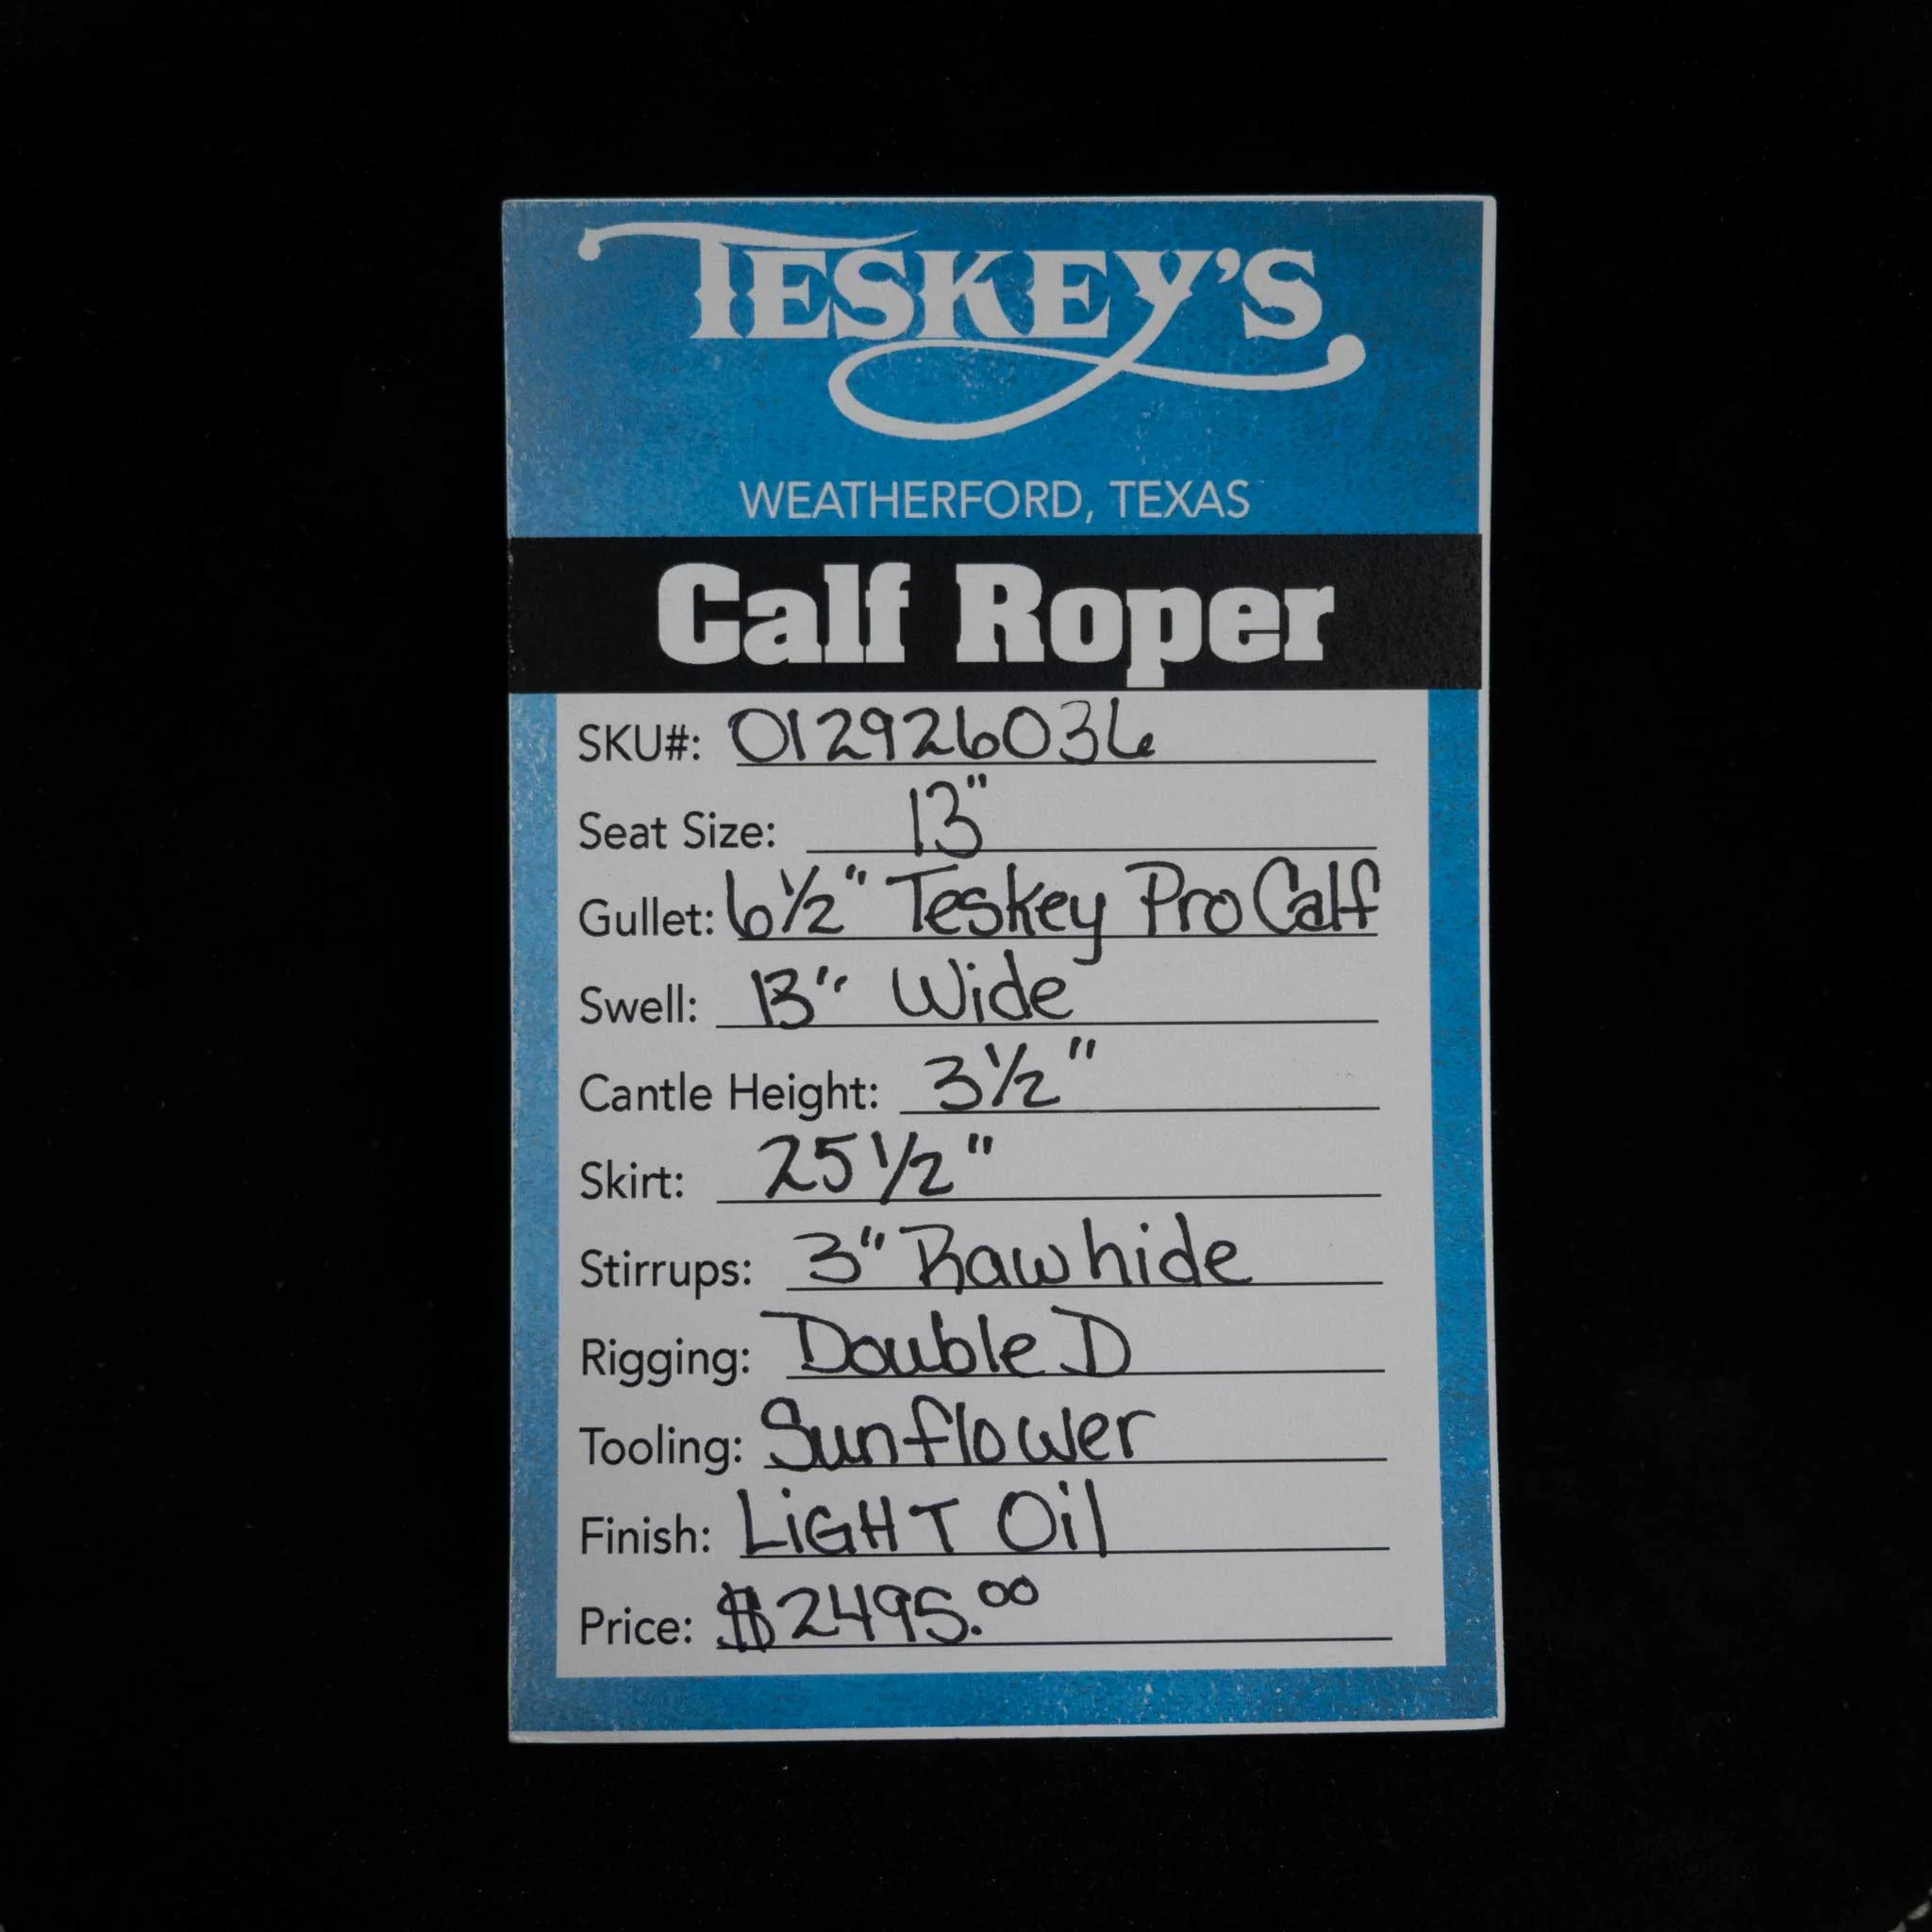 TESKEY'S
WEATHERFORD, TEXAS
Calf Roper
SKU#: 012926036
Seat Size: 13"
Gullet: 6½" Teskey Pro Calf
Swell: 13" Wide
Cantle Height: 3½"
Skirt: 25½"
Stirrups: 3" Rawhide
Rigging: Double D
Tooling: Sunflower
Finish: LiGHT Oil
Price: $2495.00